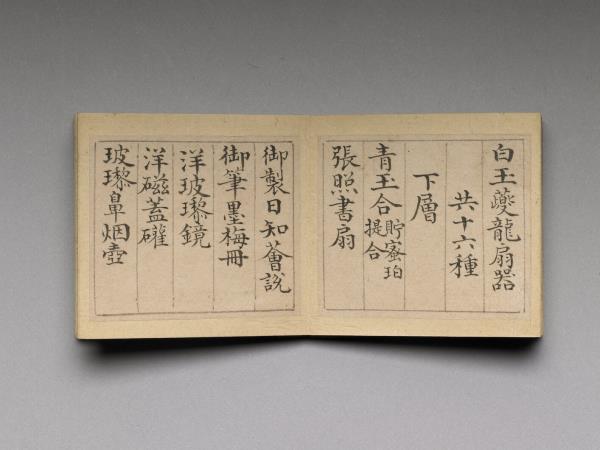 白玉夔龍扇器
共十六種
下層
青玉合貯蜜珀提合
張照書扇
御製日知薈說
御筆墨梅冊
洋玻瓈鏡
洋磁蓋礶
玻瓈鼻烟壺